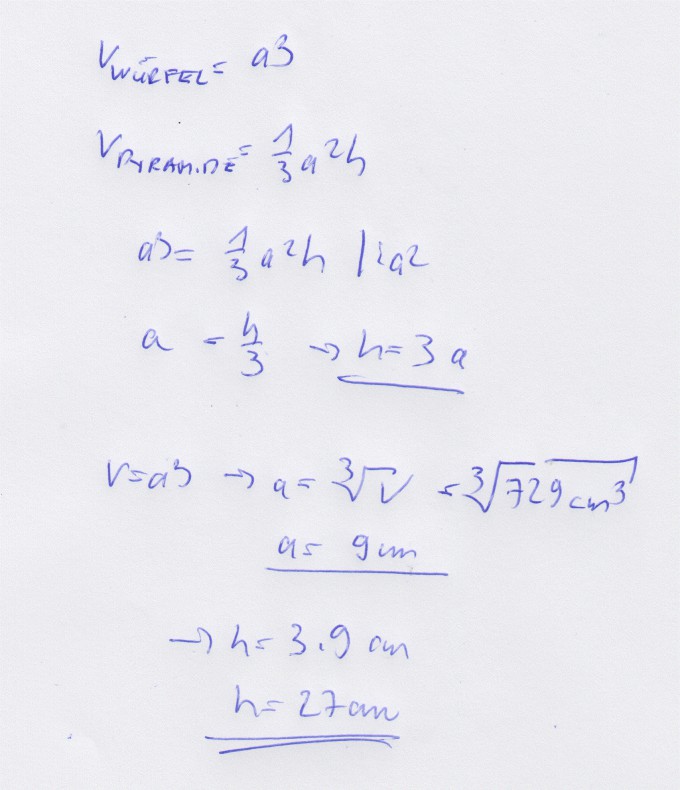 V WÜRFEL = a3
V PYRAMIDE = 1/3 a2h
a3 = 1/3 a2h |: a2
a = h/3 → h = 3a
V = a3 → a = ∛V = ∛729 cm3
a = 9 cm
→ h = 3.9 cm
h = 27 cm